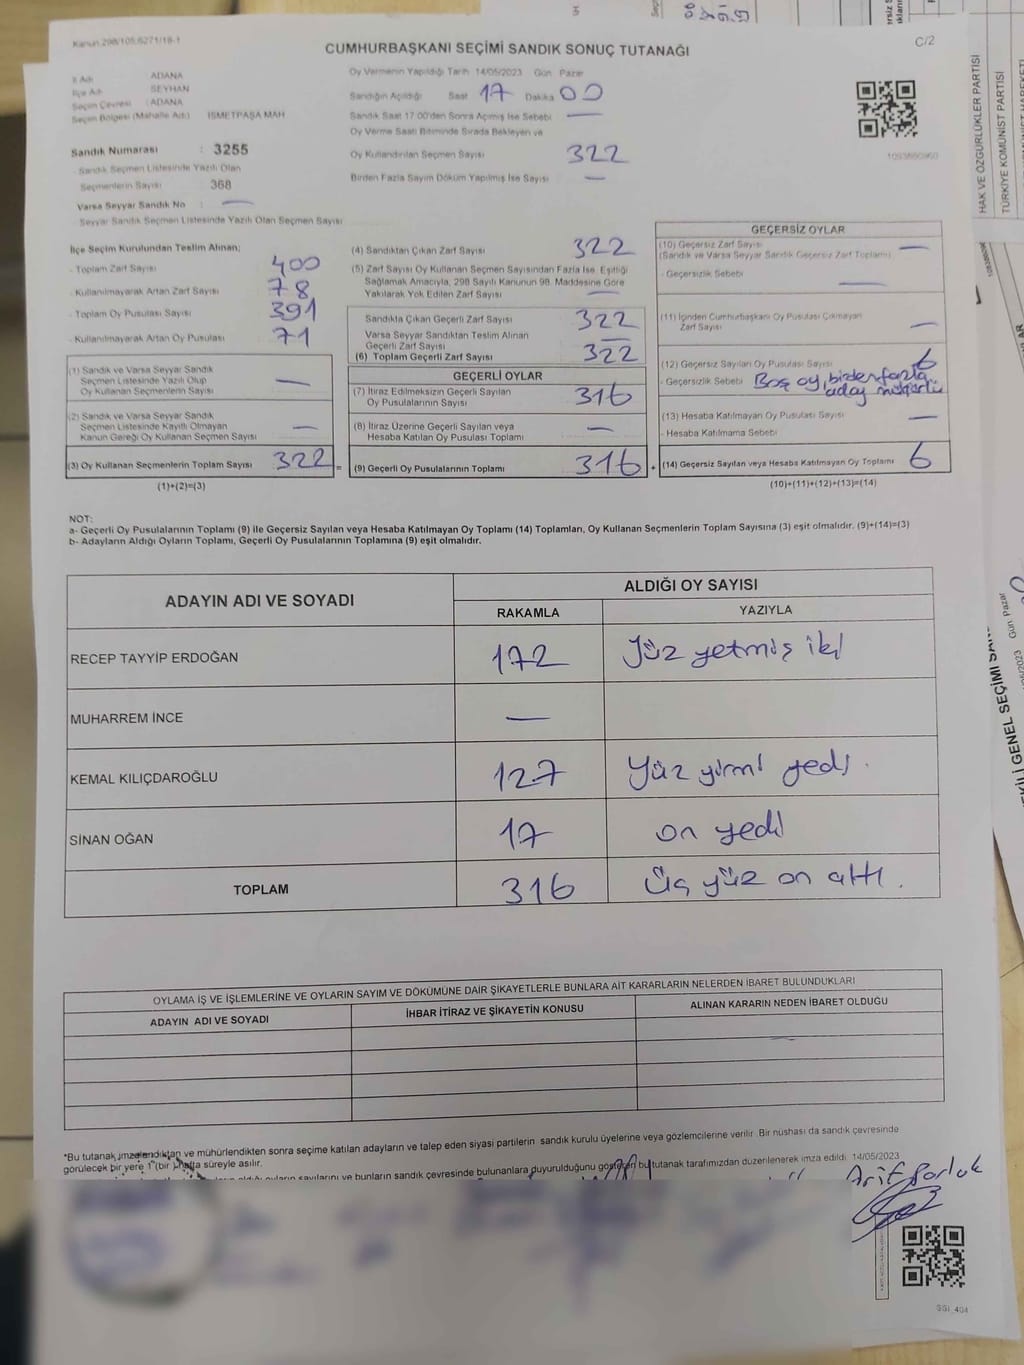 Kanun 298/105,6271/18-1
C/2
CUMHURBAŞKANI SEÇİMİ SANDIK SONUÇ TUTANAĞI
İl Adı : ADANA
İlçe Adı : SEYHAN
Seçim Çevresi : ADANA
Seçim Bölgesi (Mahalle Adı) : İSMETPAŞA MAH
Sandık Numarası : 3255
- Sandık Seçmen Listesinde Yazılı Olan
Seçmenlerin Sayısı : 368
Varsa Seyyar Sandık No : —
- Seyyar Sandık Seçmen Listesinde Yazılı Olan Seçmen Sayısı
Oy Vermenin Yapıldığı Tarih 14/05/2023 Gün Pazar
Sandığın Açıldığı Saat 17 Dakika 00
Sandık Saat 17.00'den Sonra Açımış İse Sebebi —
Oy Verme Saati Bitiminde Sırada Bekleyen ve
Oy Kullandırılan Seçmen Sayısı 322
Birden Fazla Sayım Döküm Yapılmış İse Sayısı —
1093880960
İlçe Seçim Kurulundan Teslim Alınan;
- Toplam Zarf Sayısı 400
- Kullanılmayarak Artan Zarf Sayısı 78
- Toplam Oy Pusulası Sayısı 391
- Kullanılmayarak Artan Oy Pusulası 71
(1) Sandık ve Varsa Seyyar Sandık
Seçmen Listesinde Yazılı Olup
Oy Kullanan Seçmenlerin Sayısı —
(2) Sandık ve Varsa Seyyar Sandık
Seçmen Listesinde Kayıtlı Olmayan
Kanun Gereği Oy Kullanan Seçmen Sayısı —
(3) Oy Kullanan Seçmenlerin Toplam Sayısı 322 =
(1)+(2)=(3)
(4) Sandıktan Çıkan Zarf Sayısı 322
(5) Zarf Sayısı Oy Kullanan Seçmen Sayısından Fazla İse, Eşitliği
Sağlamak Amacıyla, 298 Sayılı Kanunun 98. Maddesine Göre
Yakılarak Yok Edilen Zarf Sayısı —
Sandıkta Çıkan Geçerli Zarf Sayısı 322
Varsa Seyyar Sandıktan Teslim Alınan
Geçerli Zarf Sayısı —
(6) Toplam Geçerli Zarf Sayısı 322
GEÇERLİ OYLAR
(7) İtiraz Edilmeksizin Geçerli Sayılan
Oy Pusulalarının Sayısı 316
(8) İtiraz Üzerine Geçerli Sayılan veya
Hesaba Katılan Oy Pusulası Toplamı —
(9) Geçerli Oy Pusulalarının Toplamı 316 +
GEÇERSİZ OYLAR
(10) Geçersiz Zarf Sayısı —
(Sandık ve Varsa Seyyar Sandık Geçersiz Zarf Toplamı)
- Geçersizlik Sebebi —
(11) İçinden Cumhurbaşkanı Oy Pusulası Çıkmayan
Zarf Sayısı —
(12) Geçersiz Sayılan Oy Pusulası Sayısı 6
- Geçersizlik Sebebi Boş oy, birden fazla
aday mühürlü
(13) Hesaba Katılmayan Oy Pusulası Sayısı —
- Hesaba Katılmama Sebebi
(14) Geçersiz Sayılan veya Hesaba Katılmayan Oy Toplamı 6
(10)+(11)+(12)+(13)=(14)
NOT:
a- Geçerli Oy Pusulalarının Toplamı (9) ile Geçersiz Sayılan veya Hesaba Katılmayan Oy Toplamı (14) Toplamları, Oy Kullanan Seçmenlerin Toplam Sayısına (3) eşit olmalıdır. (9)+(14)=(3)
b- Adayların Aldığı Oyların Toplamı, Geçerli Oy Pusulalarının Toplamına (9) eşit olmalıdır.
ADAYIN ADI VE SOYADI
ALDIĞI OY SAYISI
RAKAMLA YAZIYLA
RECEP TAYYİP ERDOĞAN 172 Yüz yetmiş iki
MUHARREM İNCE —
KEMAL KILIÇDAROĞLU 127 Yüz yirmi yedi.
SİNAN OĞAN 17 on yedi
TOPLAM 316 Üç yüz on altı.
OYLAMA İŞ VE İŞLEMLERİNE VE OYLARIN SAYIM VE DÖKÜMÜNE DAİR ŞİKAYETLERLE BUNLARA AİT KARARLARIN NELERDEN İBARET BULUNDUKLARI
ADAYIN ADI VE SOYADI İHBAR İTİRAZ VE ŞİKAYETİN KONUSU ALINAN KARARIN NEDEN İBARET OLDUĞU
*Bu tutanak imzalandıktan ve mühürlendikten sonra seçime katılan adayların ve talep eden siyasi partilerin sandık kurulu üyelerine veya gözlemcilerine verilir. Bir nüshası da sandık çevresinde
görülecek bir yere 1 (bir) hafta süreyle asılır.
oyların sayılarını ve bunların sandık çevresinde bulunanlara duyurulduğunu gösteren bu tutanak tarafımızdan düzenlenerek imza edildi. 14/05/2023
Arif
SGI_404
HAK VE ÖZGÜRLÜKLER PARTİSİ
TÜRKİYE KOMÜNİST PARTİSİ
Gün: Pazar
GENEL SEÇİMİ